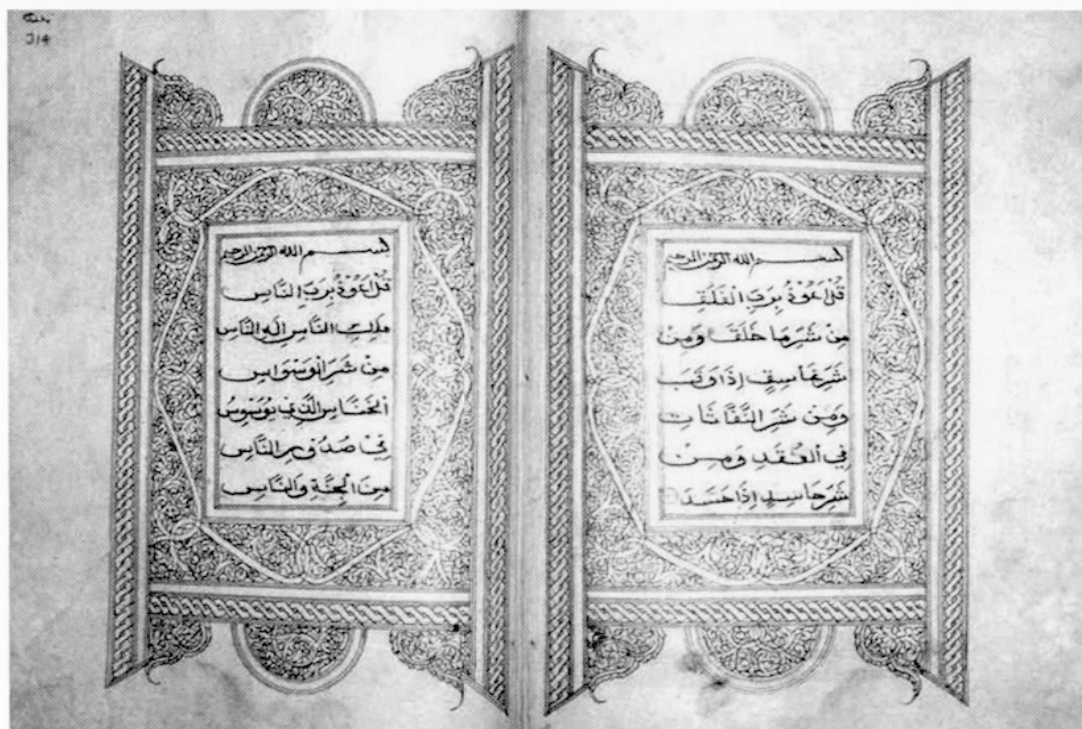 بسم الله الرحمن الرحيم
قُلْ اَعُوْذُ بِرَبِّ الْفَلَقِ
مِنْ شَرِّ مَا خَلَقَ وَمِنْ
شَرِّ غَاسِقٍ اِذَا وَقَبَ
وَمِنْ شَرِّ النَّفَّاثَاتِ
فِي الْعُقَدِ وَمِنْ
شَرِّ حَاسِدٍ اِذَا حَسَدَ
بسم الله الرحمن الرحيم
قُلْ اَعُوْذُ بِرَبِّ النَّاسِ
مَلِكِ النَّاسِ اِلَهِ النَّاسِ
مِنْ شَرِّ الْوَسْوَاسِ
الْخَنَّاسِ الَّذِي يُوَسْوِسُ
فِيْ صُدُوْرِ النَّاسِ
مِنَ الْجِنَّةِ وَالنَّاسِ
314